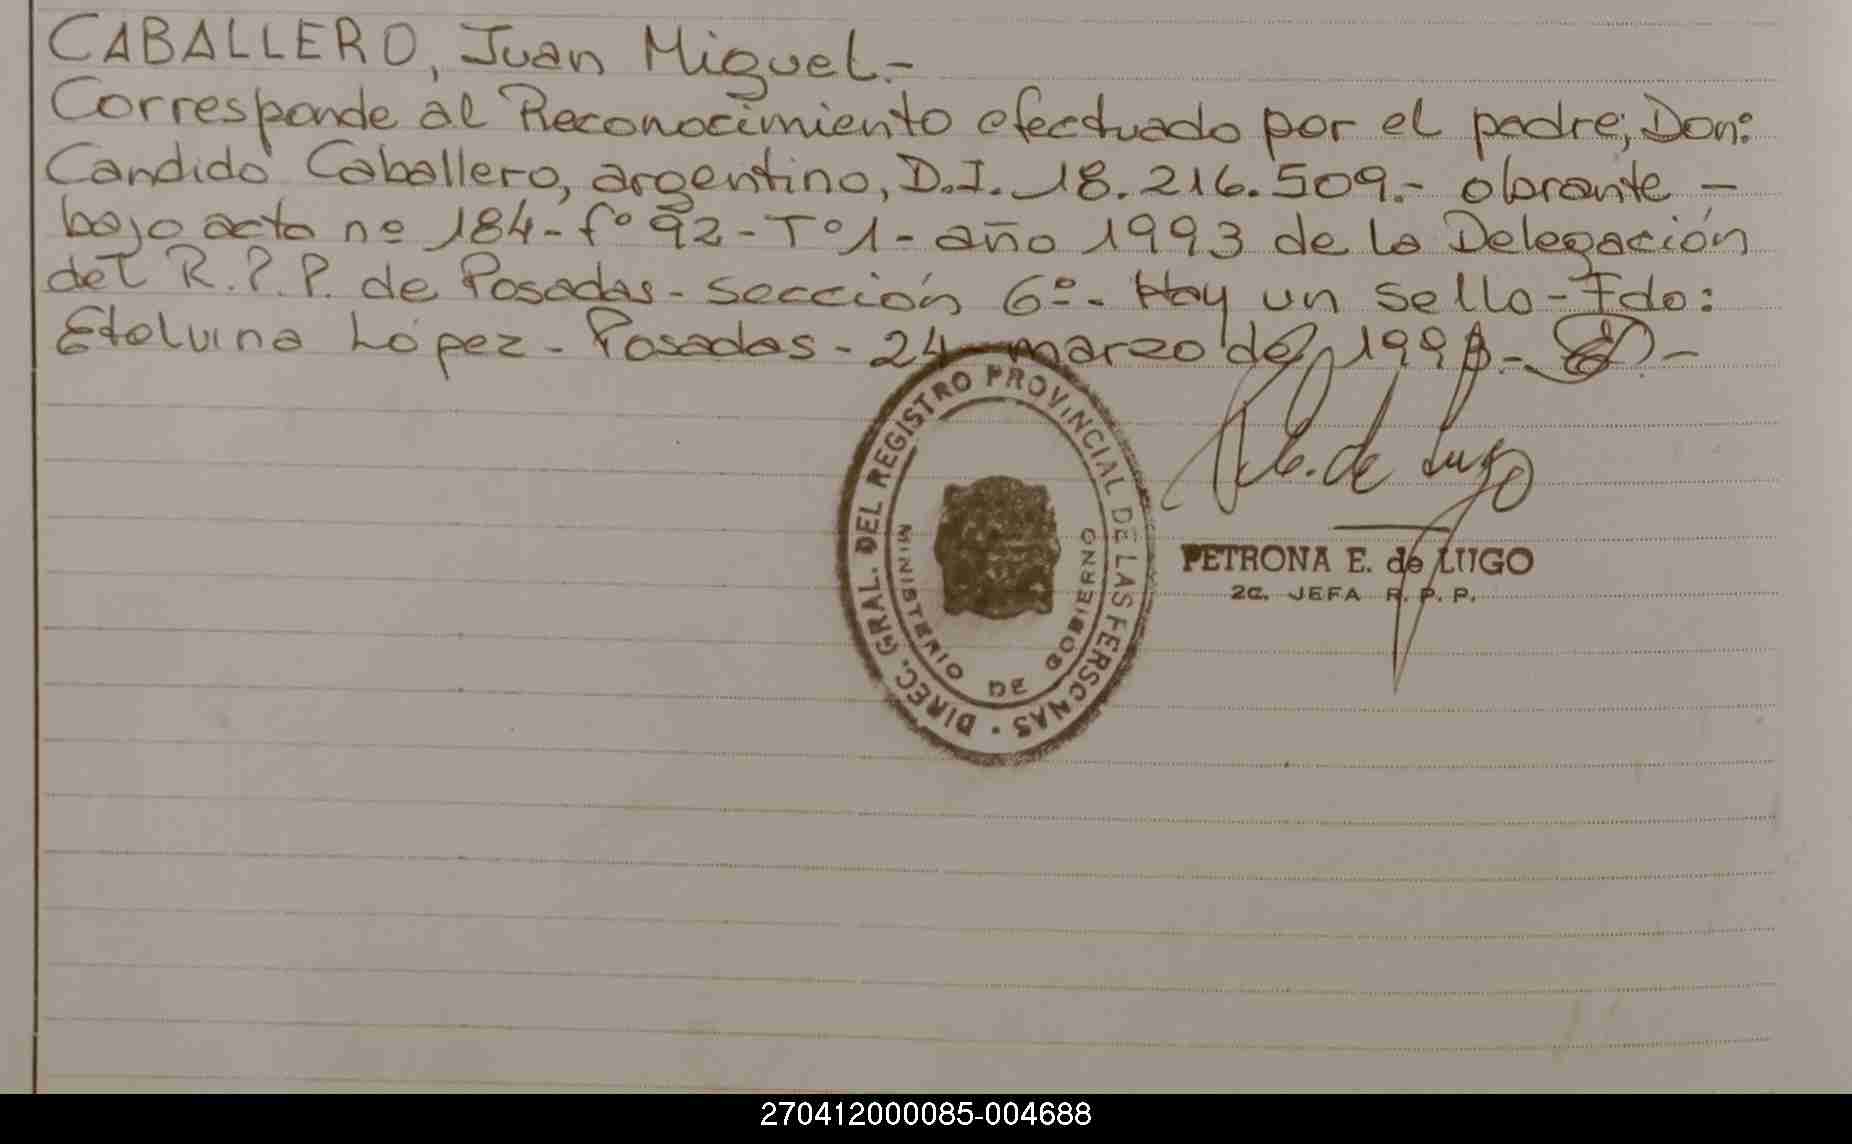 CABALLERO, Juan Miguel.-
Corresponde al Reconocimiento efectuado por el padre; Don:
Candido Caballero, argentino, D.I. 18.216.509.- obrante -
bajo acta nº 184- fº 92 - Tº 1- año 1993 de la Delegación
del R.P.P. de Posadas - sección 6º.- Hay un sello - Fdo:
Etelvina López - Posadas - 24 marzo de
DIREC. GRAL. DEL REGISTRO PROVINCIAL DE LAS PERSONAS
MINISTERIO DE GOBIERNO
de Lugo
PETRONA E. de LUGO
2a. JEFA R. P. P.
270412000085-004688